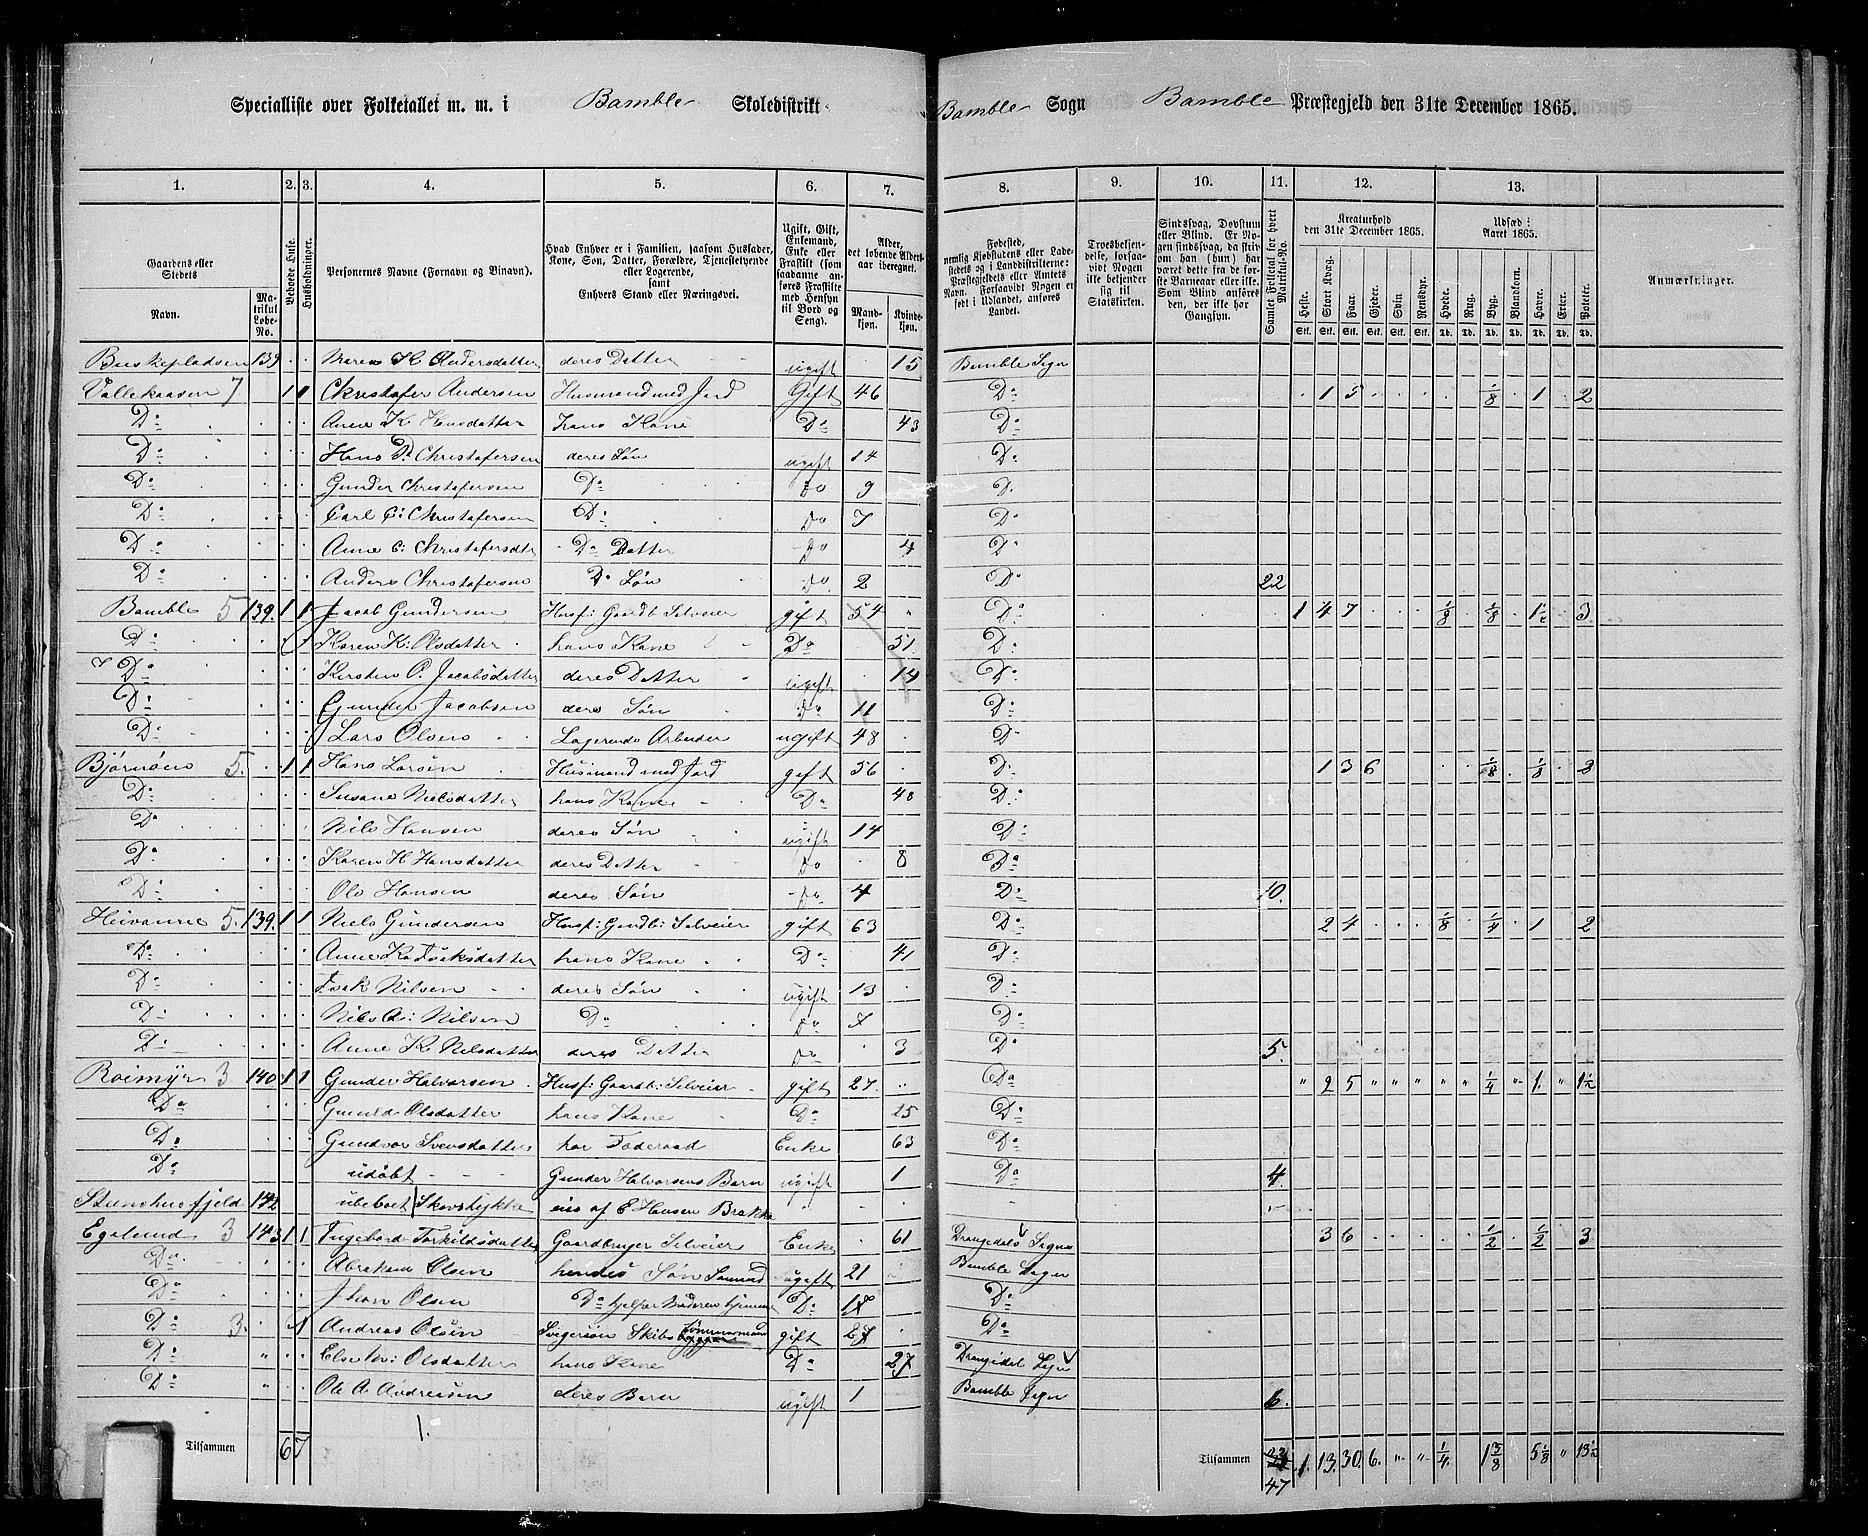 Specialliste over Folketallet m. m. i Bamble Skoledistrikt
Bamble Sogn Bamble Præstegjeld den 31te December 1865.
1. 2. 3. 4. 5. 6. 7. 8. 9. 10. 11. 12. 13.
Gaardens eller Stedets
Navn.
Matrikul Løbe-No.
Beboede Huse.
Husholdninger.
Personernes Navne (Fornavn og Binavn).
Hvad Enhver er i Familien, saasom Husfader, Kone, Søn, Datter, Forældre, Tjenestetyende eller Logerende, samt Enhvers Stand eller Næringsvei.
Ugift, Gift, Enkemand, Enke eller Fraskilt (som saadanne anføres Fraskilte med Hensyn til Bord og Seng).
Alder, det løbende Aldersaar iberegnet.
Mandkjøn. Kvindekjøn.
Fødested, nemlig Kjøbstadens eller Ladestedets og i Landdistrikterne: Præstegjeldets eller Amtets Navn. Forsaavidt Nogen er født i Udlandet, anføres Landet.
Troesbekjendelse, forsaavidt Nogen ikke bekjender sig til Statskirken.
Sindssvag, Døvstum eller Blind. Er Nogen sindssvag, da skriv om han (hun) har været dette fra de første Barneaar eller ikke. Som Blind anføres den, der ikke har Gangsyn.
Samlet Folketal for hvert Matrikul-No.
Kreaturhold den 31te December 1865.
Heste. Stort Kvæg. Faar. Gjeder. Svin. Rensdyr.
Stk. Stk. Stk. Stk. Stk. Stk.
Udsæd i Aaret 1865.
Hvede. Rug. Byg. Blandkorn. Havre. Erter. Poteter.
Td. Td. Td. Td. Td. Td. Td.
Anmærkninger.
139 Maren K Andersdatter deres Datter ugift 15 Bamble Sogn
Vallekaasen 7 1 1 Christofer Andersen Husmand med Jord Gift 46 Do 1 5 1/8 1 2
Do Anne K Hansdatter hans Kone Do 43 Do
Do Hans Christofersen deres Søn ugift 14 Do
Do Gunder Christofersen Do Do 9 D.
Do Carl C: Christofersen Do Do 7 Do
Do Anne C: Christofersdtr Do Datter Do 4 Do
Do Anders Christofersen Do Søn Do 2 Do 22
Bamble 5 139. 1 1 Jacob Gundersen Husf: Gaardb Selveier gift 54 Do 1 4 7 1/8 1/8 1 1/2 3
Do Karen K: Olsdatter hans Kone Do 51. Do
Do Kirsten O. Jacobsdatter deres Datter ugift 14 Do
Do Gunder Jacobsen deres Søn Do 11 Do
Do Lars Olsen Logerende Arbeider ugift 48 Do
Bjørnøen 5. 1 1 Hans Larsen Husmand med Jord gift 56 Do 1 3 6 1/8 1/8 2
Do Susane Nielsdatter hans Kone Do 48 Do
Do Nils Hansen deres Søn ugift 14 Do
Do Karen H Hansdatter deres Datter Do 8 Do
Do Ole Hansen deres Søn Do 4 Do 10.
5. 139. 1 1 Niels Gundersen Husf: Gaardb: Selveier gift 63 Do 2 4 1/8 1/4 1 2
Do Anne Isaksdatter hans Kone Do 41 Do
Do Isak Nilsen deres Søn ugift 13 Do
Do Nils A: Nilsen Do Do 7 Do
Do Anne K Nilsdatter deres Datter Do 3 Do 5.
Roimyr 3 140 1 1 Gunder Halvorsen Husf: Gaardb: Selveier gift 27 Do " 2 5 " " " " " 1/4 " 1. " 1 1/2
Do Gunild Olsdatter hans Kone Do 25 Do
Do Gundvor Svensdatter har Føderaad Enke 63 Do
Do udøbt Gunder Halvorsens Barn ugift 1 Do 4.
Steenhusfjeld 142 ubeboet Skovstykke eies af E Hansen Brække
Egelund 3 143 1 1 Ingebord Torkildsdatter Gaardbruger Selveier Enke 61 Drangedals Sogn 3 6 1/2 1/2 3
Do Abraham Olsen hendes Søn Sømand ugift 21 Bamble Sogn
Do Jhon Olsen Do hjelper Moderen hjemme Do 18 Do
Do 3. 1 Andreas Olsen Svigersøn Skibstømmermand gift 27 Do
Do " Olsdatter hans Kone Do 27 Drangedal Sogn
Do " Ole A. Andreasen deres Barn ugift 1 Bamble Sogn 6.
Tilsammen 6 7 1.
Tilsammen 47 1. 13. 30 6. " " 1/4 1 3/8 5 1/8 " 13 1/2